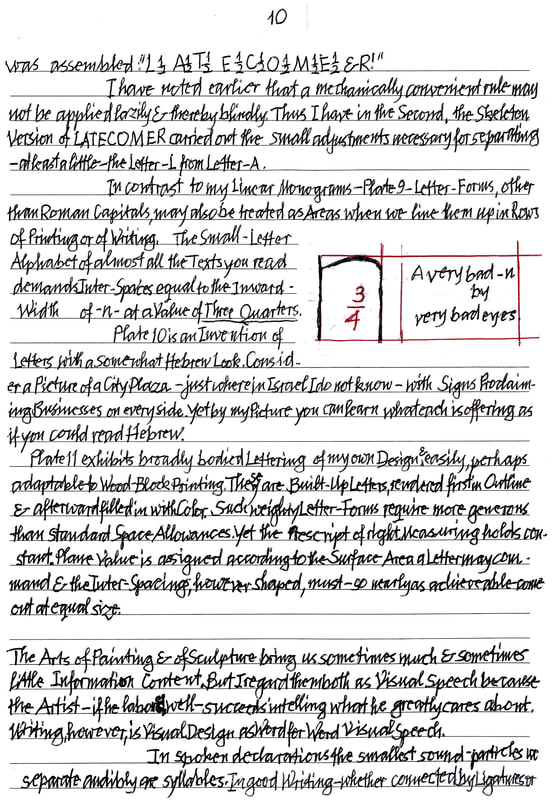 10
was assembled: "L½ A½T½ E½C½O½M½E½ & R!"
I have noted earlier that a mechanically convenient rule may
not be applied lazily & thereby blindly. Thus I have in the Second, the Skeleton
Version of LATECOMER carried out the small adjustments necessary for separating
-at least a little- the Letter-L from Letter-A.
In contrast to my Linear Monograms-Plate 9-Letter-Forms, other
than Roman Capitals, may also be treated as Areas when we line them up in Rows
of Printing or of Writing. The Small-Letter
Alphabet of almost all the Texts you read
demands Inter-Spaces equal to the Inward-
Width of -n- at a Value of Three Quarters.
3/4
A very bad -n
by
very bad eyes
Plate 10 is an Invention of
Letters with a somewhat Hebrew Look. Consid-
er a Picture of a City Plaza -just where in Israel I do not know- with Signs Proclaim-
ing Businesses on every side. Yet by my Picture you can learn what each is offering as
if you could read Hebrew.
Plate 11 exhibits broadly bodied Lettering of my own Design, & easily, perhaps
adaptable to Wood Block Printing. These are Built-Up Letters, rendered first in Outline
& afterward filled in with Color. Such weighty Letter-Forms require more generous
than standard Space Allowances. Yet the Prescript of right Measuring holds con-
stant. Plane Value is assigned according to the Surface Area a Letter may com-
mand & the Inter-Spacing, however shaped, must-so nearly as achieveable-come
out at equal size.
The Arts of Painting & of Sculpture bring us sometimes much & sometimes
little Information Content. But I regard them both as Visual Speech because
the Artist-if he labors well-succeeds in telling what he greatly cares about.
Writing, however, is Visual Design as Word for Word Visual Speech.
In spoken declarations the smallest sound-particles we
separate audibly are syllables. In good Writing-whether connected by Ligatures or